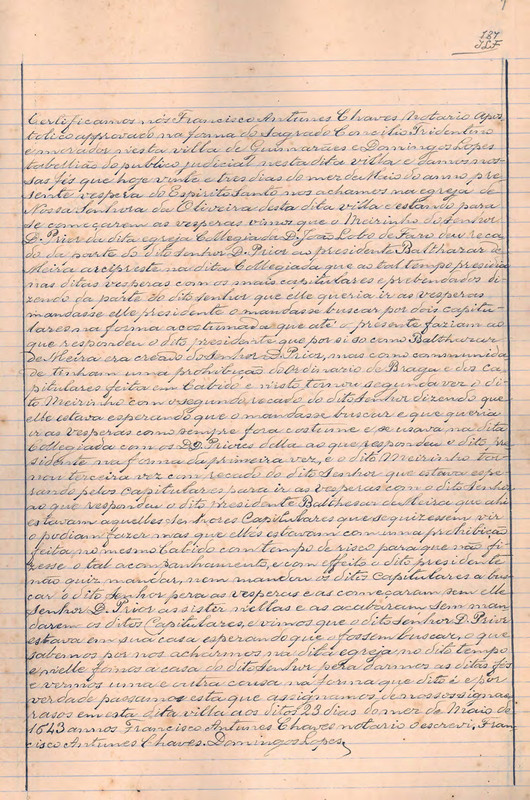 187
JLF
Certificamos nós Francisco Antunes Chaves Notario Apos
tolico approvado na forma do Sagrado Concilio Tridentino
e morador n'esta villa de Guimarães e Domingos Lopes
tabellião do publico judicial nesta dita villa e damos nos-
sas fés que hoje vinte e tres dias do mez de Maio do anno pre-
sente vespera do Espirito Santo nos achamos na egreja de
Nossa Senhora da Oliveira desta dita villa e estando para
se começarem as vesperas vimos que o Meirinho do Senhor
D. Prior da dita egreja Collegiada D. João Lobo de Faro deu reca
do da parte do dito Senhor D. Prior ao presidente Balthazar de
Meira arcipreste na dita Collegiada que ao tal tempo presidia
nas ditas vesperas com os mais capitulares e prebendados di-
zendo da parte do dito Senhor que elle queria ir as vesperas
mandasse elle presidente o mandasse buscar por dois capitu-
lares na forma acostumada que até o presente faziam ao
que respondeu o dito presidente que por si so como Balthazar
de Meira era creado do Senhor D. Prior, mas como communida
de tinham uma prohibição do Ordinario de Braga e dos ca-
pitulares feita em Cabido e n'isto tornou segunda vez o di-
to Meirinho com segundo recado do dito Senhor dizendo que
elle estava esperando que o mandasse buscar e que queria
ir as vesperas como sempre fora costume e se usava na dita
Collegiada com os D.D. Priores della ao que respondeu o dito pre-
sidente na forma da primeira vez, e o dito Meirinho tor-
nou terceira vez com recado do dito Senhor que estava espe-
rando pelos capitulares para ir as vesperas com o dito Senhor
ao que respondeu o dito Presidente Balthesar de Meira que ahi
estavam aquelles Senhores Capitulares que se quizessem vir
o podiam fazer mas que elles estavam com uma prohibição
feita no mesmo Cabido com tempo de risco para que não fi-
zesse o tal acompanhamento, e com effeito o dito presidente
não quiz mandar, nem mandou os ditos capitulares a bus-
car o dito Senhor pera as vesperas e as começaram sem elle
Senhor D. Prior assistir n'ellas e as acabaram sem man-
darem os ditos Capitulares, e vimos que o dito Senhor D. Prior
estava em sua casa esperando que o fossem buscar, o que
sabemos por nos acharmos na dita egreja no dito tempo
e n'elle fomos a casa do dito Senhor pera darmos as ditas fés
e vermos uma e outra cousa na forma que dito é e por
verdade passamos esta que assignamos de nossos signaes
rasos em esta dita villa aos ditos 23 dias do mez de Maio de
1643 annos Francisco Antunes Chaves notario o escrevi. Fran-
cisco Antunes Chaves. Domingos Lopes,